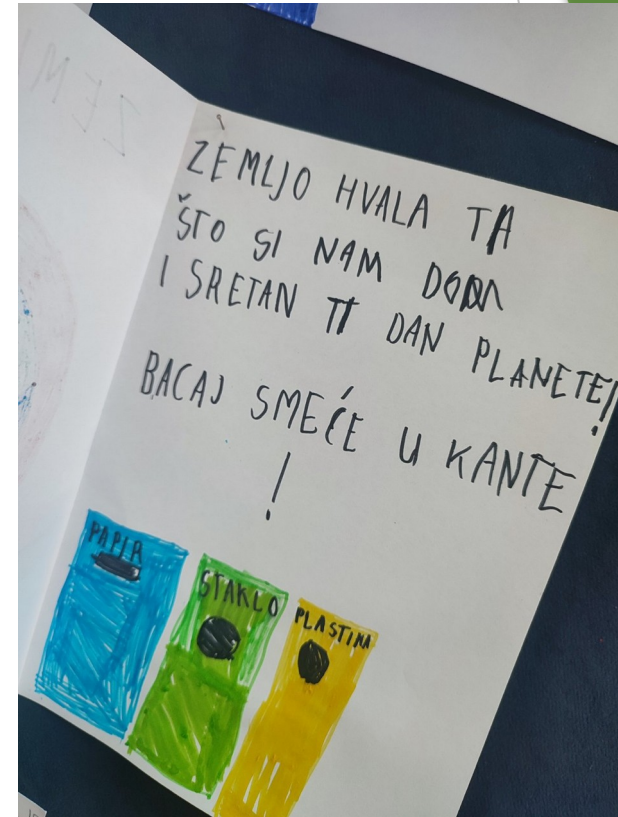 ZEMLJO HVALA TA
ŠTO SI NAM DOM
I SRETAN TI DAN PLANETE!
BACAJ SMEĆE U KANTE
!
PAPIR
STAKLO
PLASTIKA